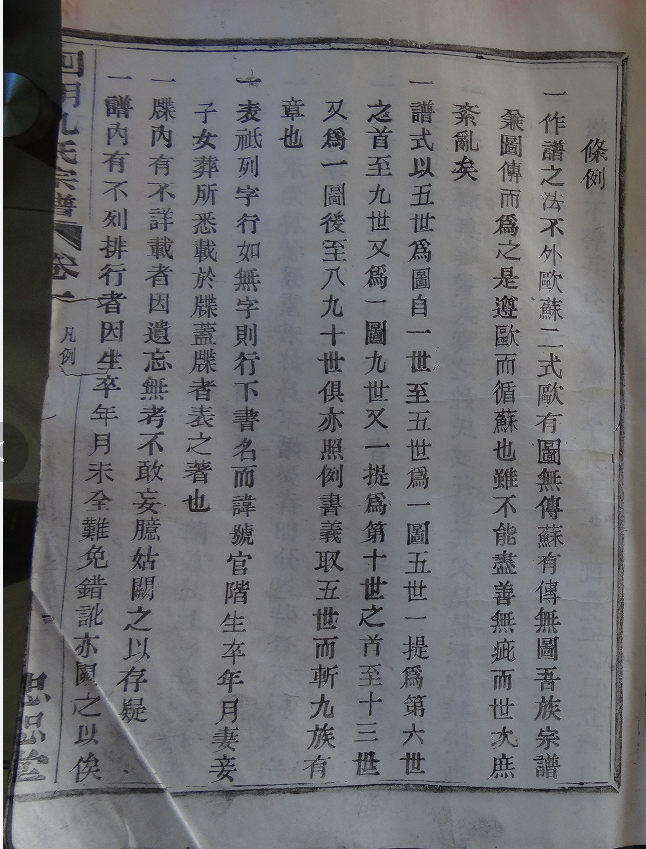 條例
一作譜之法不外歐蘇二式歐有圖無傳蘇有傳無圖吾族宗譜
兼圖傳而爲之是遵歐而循蘇也雖不能盡善無疵而世次庶
紊亂矣
一譜式以五世爲圖自一世至五世爲一圖五世一提爲第六世
之首至九世又爲一圖九世又一提爲第十世之首至十三世
又爲一圖後至八九十世俱亦照例書義取五世而斬九族有
章也
一表祇列字行如無字則行下書名而諱號官階生卒年月妻妾
子女葬所悉載於牒蓋牒者表之著也
一牒內有不詳載者因遺忘無考不敢妄臆姑闕之以存疑
一譜內有不列排行者因生卒年月未全難免錯訛亦闕之以俟
四明孔氏宗譜 卷一 凡例 堂